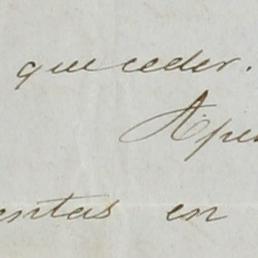 que ceder.
Ape
entas en